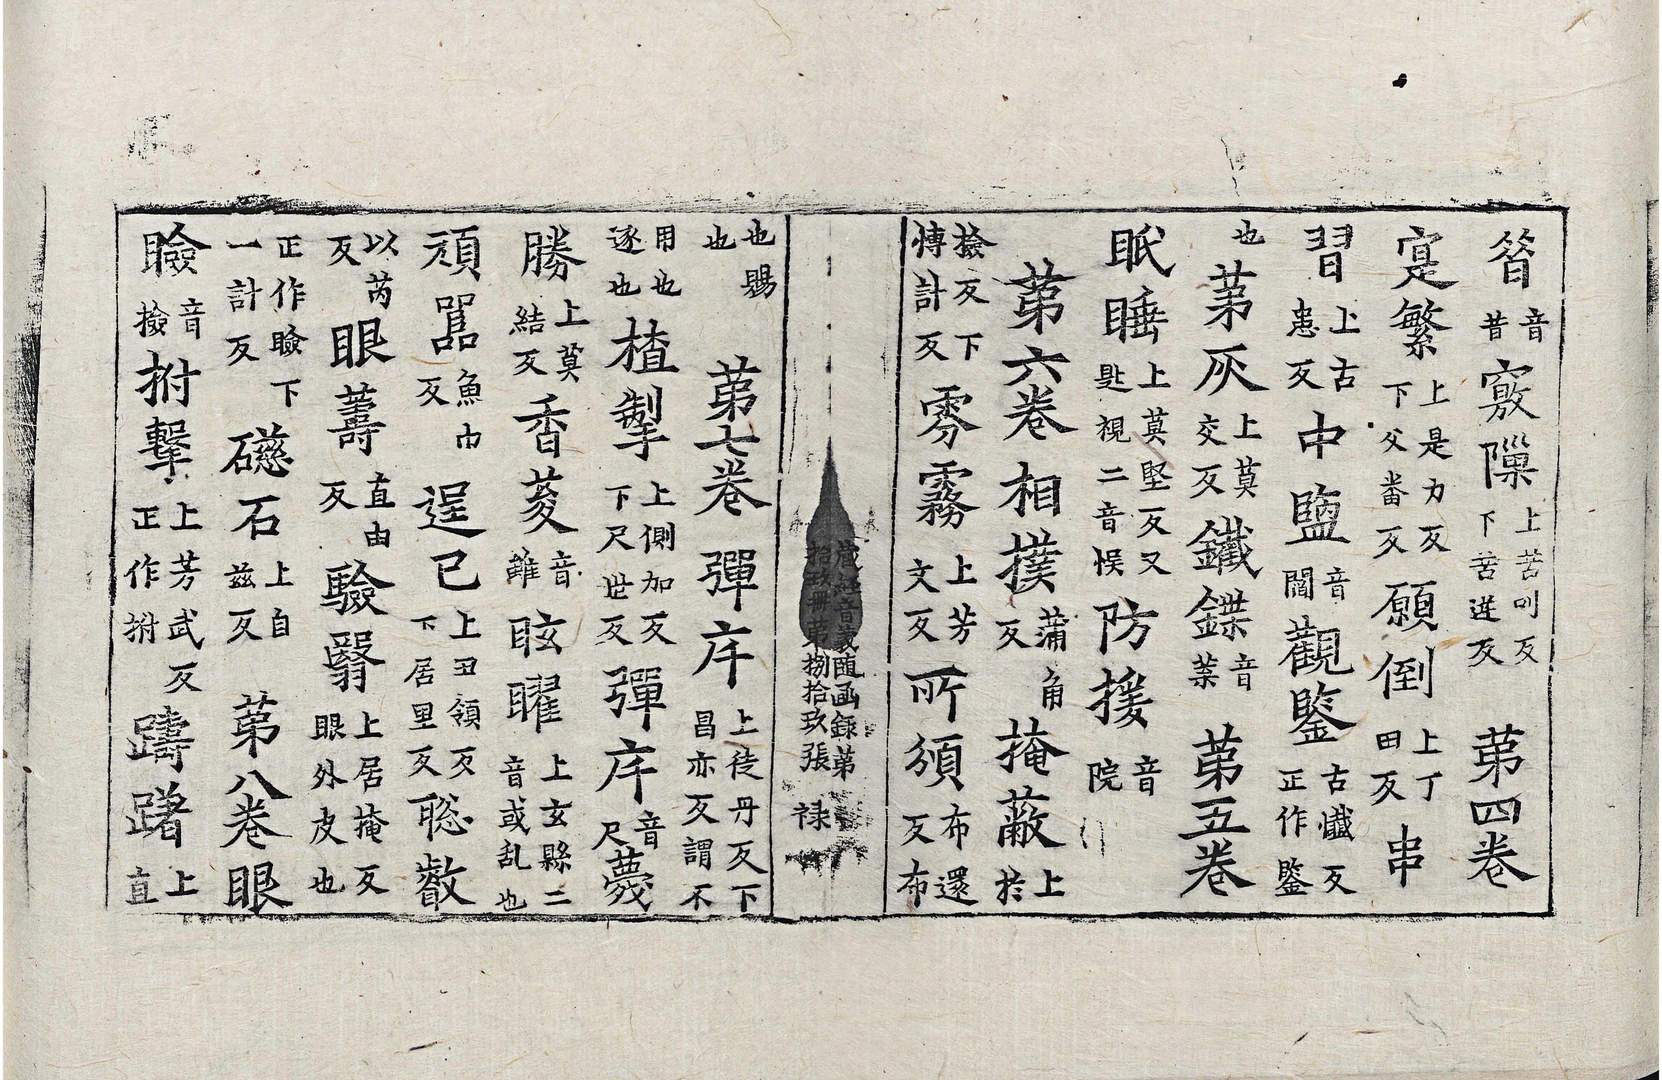 昝音昔竅隟上苦叫反下苦逆反 第四卷
寔繁上是力反下父畨反願倒上丁田反 串
習上古患反中𥂁音閻觀鑒古懴反正作鑒
也 第灰上莫交反鐵鍱音葉 第五卷
眠睡上莫堅反又匙視二音悮防援音院
第六卷 相撲蒲角反掩蔽上於
撿反下愽計反雰霧上芳文反所頒布還反布
也賜也 第七卷 彈㡿上徒丹反下昌亦反謂不
用也逐也樝掣上側加反下尺世反彈㡿音尺薎
勝上莫結反香荾音雖眩曜上玄縣二音或乱也
頑嚚魚巾反 逞已上丑領反下居里反聡叡
以芮反眼薵直由反驗翳上居掩反眼外皮也
正作瞼下一計反礠石上自兹反 第八卷眼
瞼音撿拊擊上芳武反正作拊 躊躇上直
藏經音義随函録第拾玖冊第捌拾玖張 禄